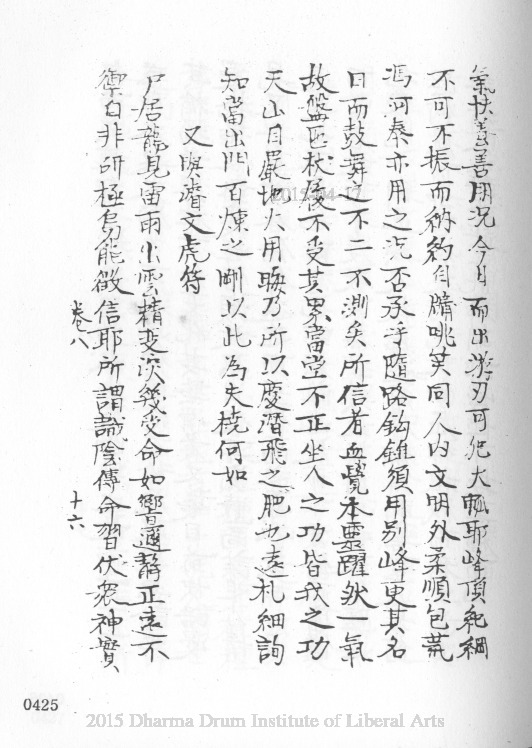 氣快善善用況今日而出游刃可犯大軱耶峰頂純綱
不可不振而納約自牖咷笑同人內文明外柔順包荒
馮河泰亦用之況否承乎隨路鈎錐須用別峰更其名
日而鼓舞之不二不測矣所信者血覺本靈躍然一氣
故盤匜杖屨不受其累當堂不正坐人之功皆我之功
天山自嚴地火用晦乃所以慶潛飛之肥也遠札細詢
知當出門百煉之剛以此為夫橈何如
又與潛文虎符
尸居龍見雷雨出雲精變深幾受命如響邇靜正遠不
禦自非研極烏能徵信耶所謂誠陰傳命習伏眾神實
卷八
十六
0425
2015-04-17
2015 Dharma Drum Institute of Liberal Arts